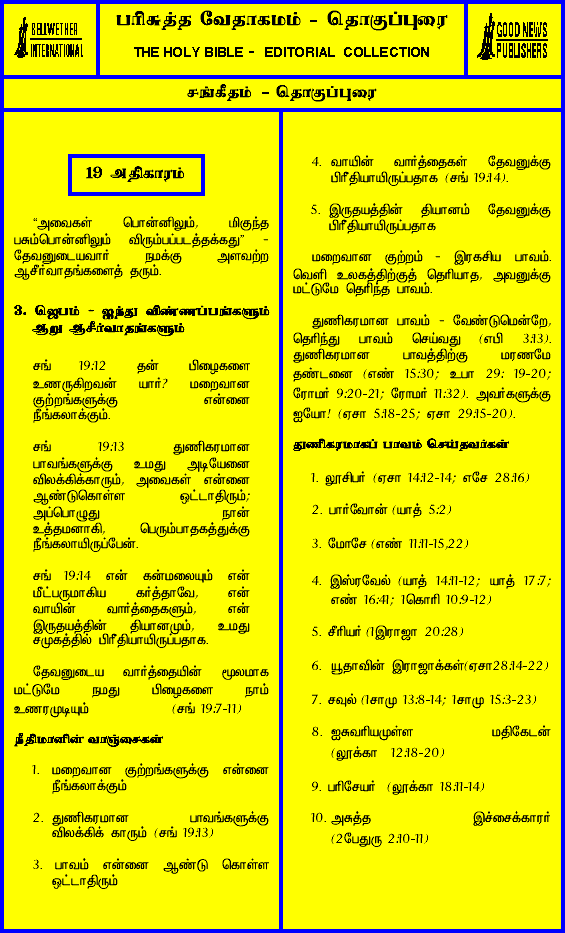 BELLWETHER
INTERNATIONAL
பரிசுத்த வேதாகமம் - தொகுப்புரை
THE HOLY BIBLE - EDITORIAL COLLECTION
GOOD NEWS
PUBLISHERS
சங்கீதம் - தொகுப்புரை
19 அதிகாரம்
“அவைகள் பொன்னிலும், மிகுந்த
பசும்பொன்னிலும் விரும்பப்படத்தக்கது” -
தேவனுடையவார் நமக்கு அளவற்ற
ஆசீர்வாதங்களைத் தரும்.
3. ஜெபம் - ஐந்து விண்ணப்பங்களும்
ஆறு ஆசீர்வாதங்களும்
சங் 19:12 தன் பிழைகளை
உணருகிறவன் யார்? மறைவான
குற்றங்களுக்கு என்னை
நீங்கலாக்கும்.
சங் 19:13 துணிகரமான
பாவங்களுக்கு உமது அடியேனை
விலக்கிக்காரும், அவைகள் என்னை
ஆண்டுகொள்ள ஒட்டாதிரும்;
அப்பொழுது நான்
உத்தமனாகி, பெரும்பாதகத்துக்கு
நீங்கலாயிருப்பேன்.
சங் 19:14 என் கன்மலையும் என்
மீட்பருமாகிய கர்த்தாவே, என்
வாயின் வார்த்தைகளும், என்
இருதயத்தின் தியானமும், உமது
சமுகத்தில் பிரீதியாயிருப்பதாக.
தேவனுடைய வார்த்தையின் மூலமாக
மட்டுமே நமது பிழைகளை நாம்
உணரமுடியும் (சங் 19:7-11)
நீதிமானின் வாஞ்சைகள்
1. மறைவான குற்றங்களுக்கு என்னை
நீங்கலாக்கும்
2. துணிகரமான பாவங்களுக்கு
விலக்கிக் காரும் (சங் 19:13)
3. பாவம் என்னை ஆண்டு கொள்ள
ஒட்டாதிரும்
4. வாயின் வார்த்தைகள் தேவனுக்கு
பிரீதியாயிருப்பதாக (சங் 19:14).
5. இருதயத்தின் தியானம் தேவனுக்கு
பிரீதியாயிருப்பதாக
மறைவான குற்றம் - இரகசிய பாவம்.
வெளி உலகத்திற்குத் தெரியாத, அவனுக்கு
மட்டுமே தெரிந்த பாவம்.
துணிகரமான பாவம் - வேண்டுமென்றே,
தெரிந்து பாவம் செய்வது (எபி 3:13).
துணிகரமான பாவத்திற்கு மரணமே
தண்டனை (எண் 15:30; உபா 29: 19-20;
ரோமர் 9:20-21; ரோமர் 11:32). அவர்களுக்கு
ஐயோ! (ஏசா 5:18-25; ஏசா 29:15-20).
துணிகரமாகப் பாவம் செய்தவர்கள்
1. லூசிபர் (ஏசா 14:12-14; எசே 28:16)
2. பார்வோன் (யாத் 5:2)
3. மோசே (எண் 11:11-15,22)
4. இஸ்ரவேல் (யாத் 14:11-12; யாத் 17:7;
எண் 16:41; 1கொரி 10:9-12)
5. சீரியர் (1இராஜா 20:28)
6. யூதாவின் இராஜாக்கள்(ஏசா28:14-22)
7. சவுல் (1சாமு 13:8-14; 1சாமு 15:3-23)
8. ஐசுவரியமுள்ள மதிகேடன்
(லூக்கா 12:18-20)
9. பரிசேயர் (லூக்கா 18:11-14)
10. அசுத்த இச்சைக்காரர்
(2பேதுரு 2:10-11)